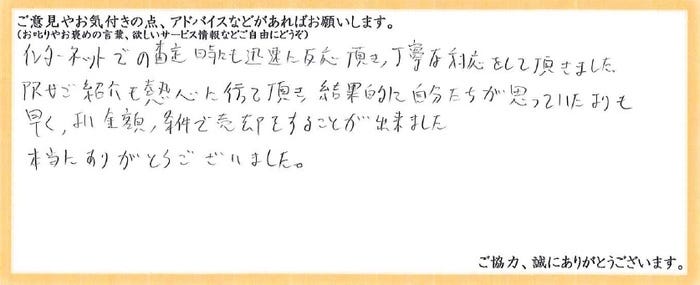 ご意見やお気付きの点、アドバイスなどがあればお願いします。
(お叱りやお褒めの言葉、欲しいサービス情報などご自由にどうぞ)
インターネットでの査定時にも迅速に反応頂き、丁寧な対応をして頂きました。
ご紹介も熱心に行って頂き、結果的に自分たちが思っていたよりも
早く、より金額、条件で売却をすることが出来ました
本当にありがとうございました。
ご協力、誠にありがとうございます。